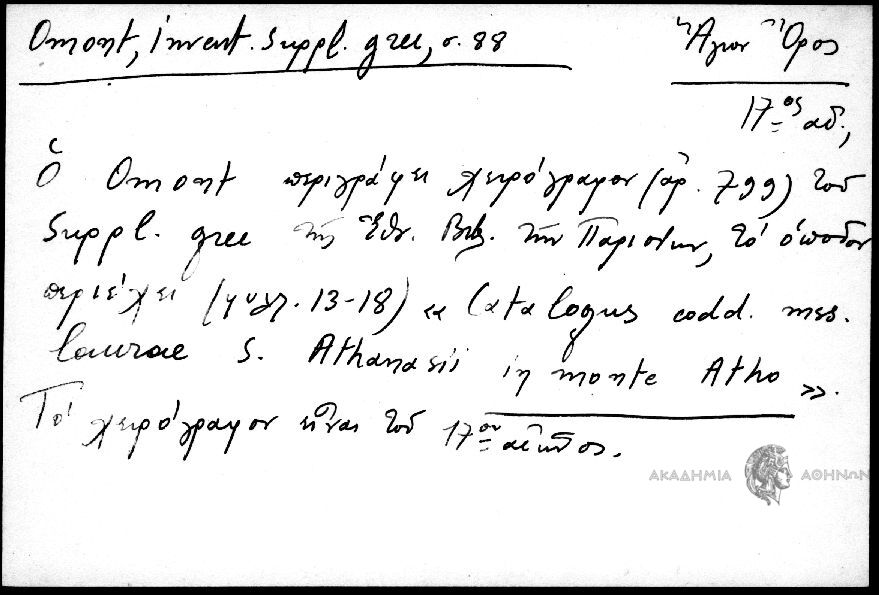 Omont, invent. Suppl. grec, σ. 88
Ἅγιον Ὄρος
17ος αἰ.,
Ὁ Omont περιγράφει χειρόγραφον (ἀρ. 799) τοῦ
Suppl. grec τῆς Ἐθν. Βιβ. τῶν Παρισίων, τὸ ὁποῖον
περιέχει (φυλλ. 13-18) « Catalogus codd. mss.
laurae S. Athanasii in monte Atho ».
Τὸ χειρόγραφον εἶναι τοῦ 17ου αἰῶνος.
ΑΚΑΔΗΜΙΑ ΑΘΗΝΩΝ